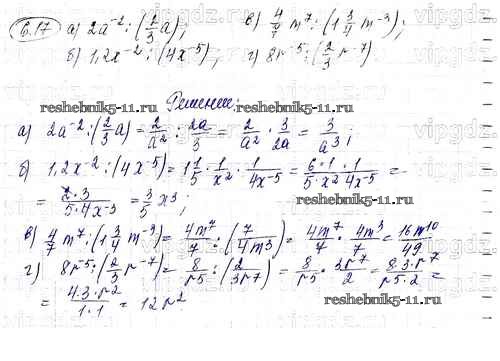 6.17 а) 2a⁻² : (2/3 a); в) 4/7 m⁷ : (1 3/4 m⁻³);
б) 1,2x⁻² : (4x⁻⁵); г) 8r⁻⁵ : (2/3 r⁻⁷)
reshebnik5-11.ru Решение. reshebnik5-11.ru
а) 2a⁻² : (2/3 a) = 2/a² : 2a/3 = 2/a² · 3/2a = 3/a³;
б) 1,2x⁻² : (4x⁻⁵) = 1 1/5 · 1/x² · 1/4x⁻⁵ = 6·1·1/5·x²·4x⁻⁵ =
= 2·3/5·4x⁻³ = 3/5 x³;
в) 4/7 m⁷ : (1 3/4 m⁻³) = 4m⁷/7 : (7/4m³) = 4m⁷/7 · 4m³/7 = 16m¹⁰/49
г) 8r⁻⁵ : (2/3 r⁻⁷) = 8/r⁵ : (2/3r⁷) = 8/r⁵ · 3r⁷/2 = 8·3·r⁷/r⁵·2 =
= 4·3·r²/1·1 = 12r²
reshebnik5-11.ru
vipgdz